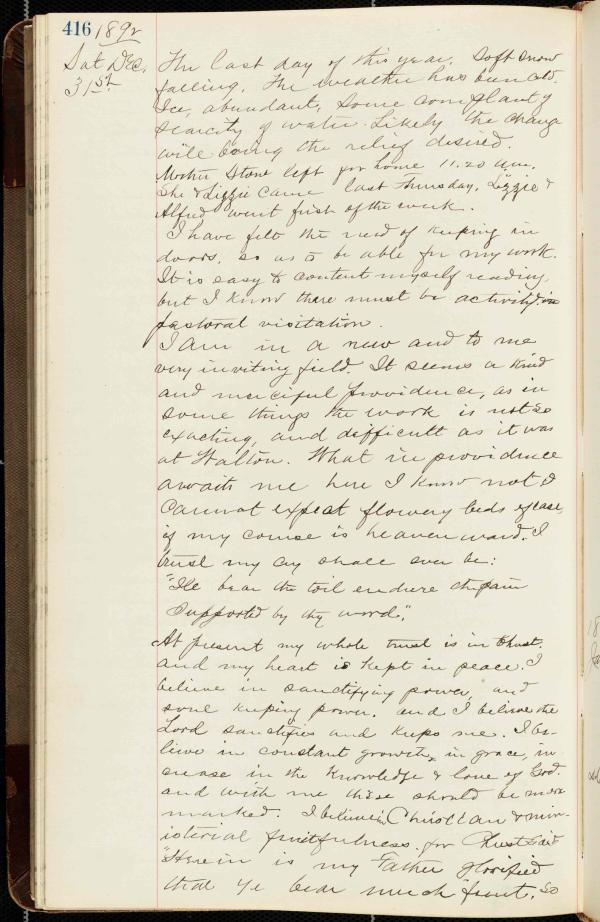 416 1892
Sat Dec. The last day of this year. Soft snow
31st falling. The weather has been cold.
Ice, abundant, Some complaint of
scarcity of water. Likely the change
will bring the relief desired.
Mother Stone left for home 11.20 a.m.
She & Lizzie came last Thursday. Lizzie &
Alfred went first of the week.
I have felt the need of keeping in
doors, so as to be able for my work.
It is easy to content myself reading,
but I know there must be activity in
pastoral visitation.
I am in a new and to me
very inviting field. It seems a kind
and merciful providence, as in
some things the work is not so
exacting, and difficult as it was
at Walton. What in providence
awaits me here I know not I
cannot expect flowery beds of ease,
if my course is heavenward. I
trust my cry shall ever be:
"I'le bear the toil endure the pain
Supported by thy word."
At present my whole trust is in Christ.
and my heart is kept in peace. I
believe in sanctifying power, and
soul keeping power. and I believe the
Lord sanctifies and keeps me. I be-
lieve in constant growth, in grace, in
crease in the knowledge & love of God.
and with me these should be more
marked. I believe in Christian & min-
isterial fruitfulness. for Christ said
"Herein is my Father glorified
that ye bear much fruit. So